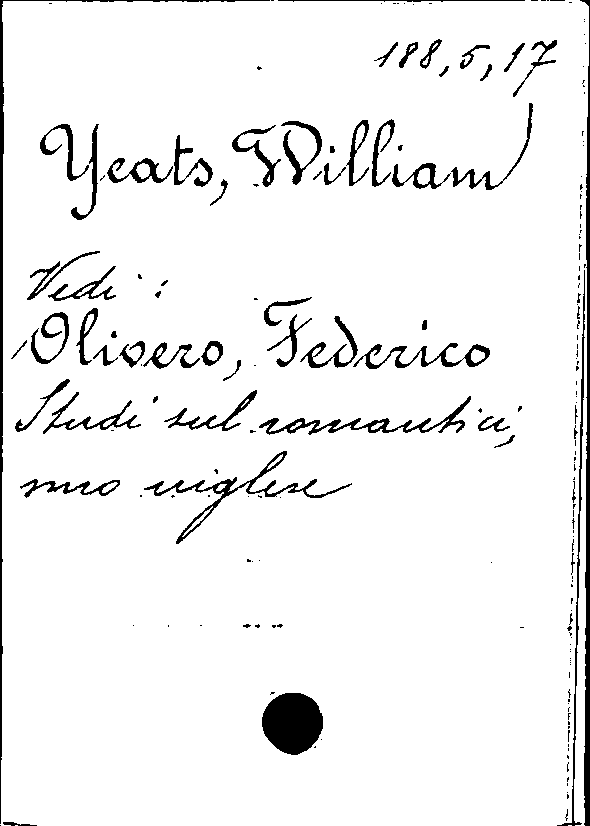 188,5,17
Yeats, William
Vedi:
Olivero, Federico
Studi sul romantici,
smo inglese